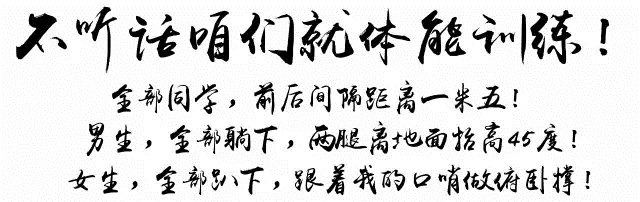 不听话咱们就体能训练！
全部同学，前后间隔距离一米五！
男生，全部躺下，两腿离地面抬高45度！
女生，全部趴下，跟着我的口哨做俯卧撑！